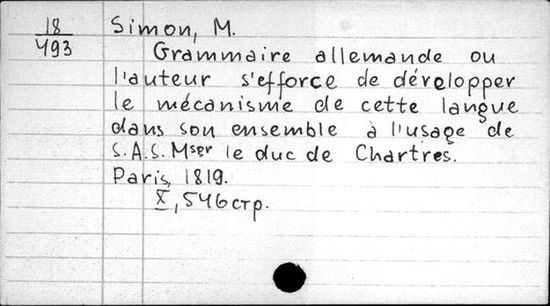 18
493
Simon, M.
Grammaire allemande ou
l'auteur s'efforce de développer
le mécanisme de cette langue
dans son ensemble à l'usage de
S.A.S. Mser le duc de Chartres.
Paris, 1819.
X, 546 стр.